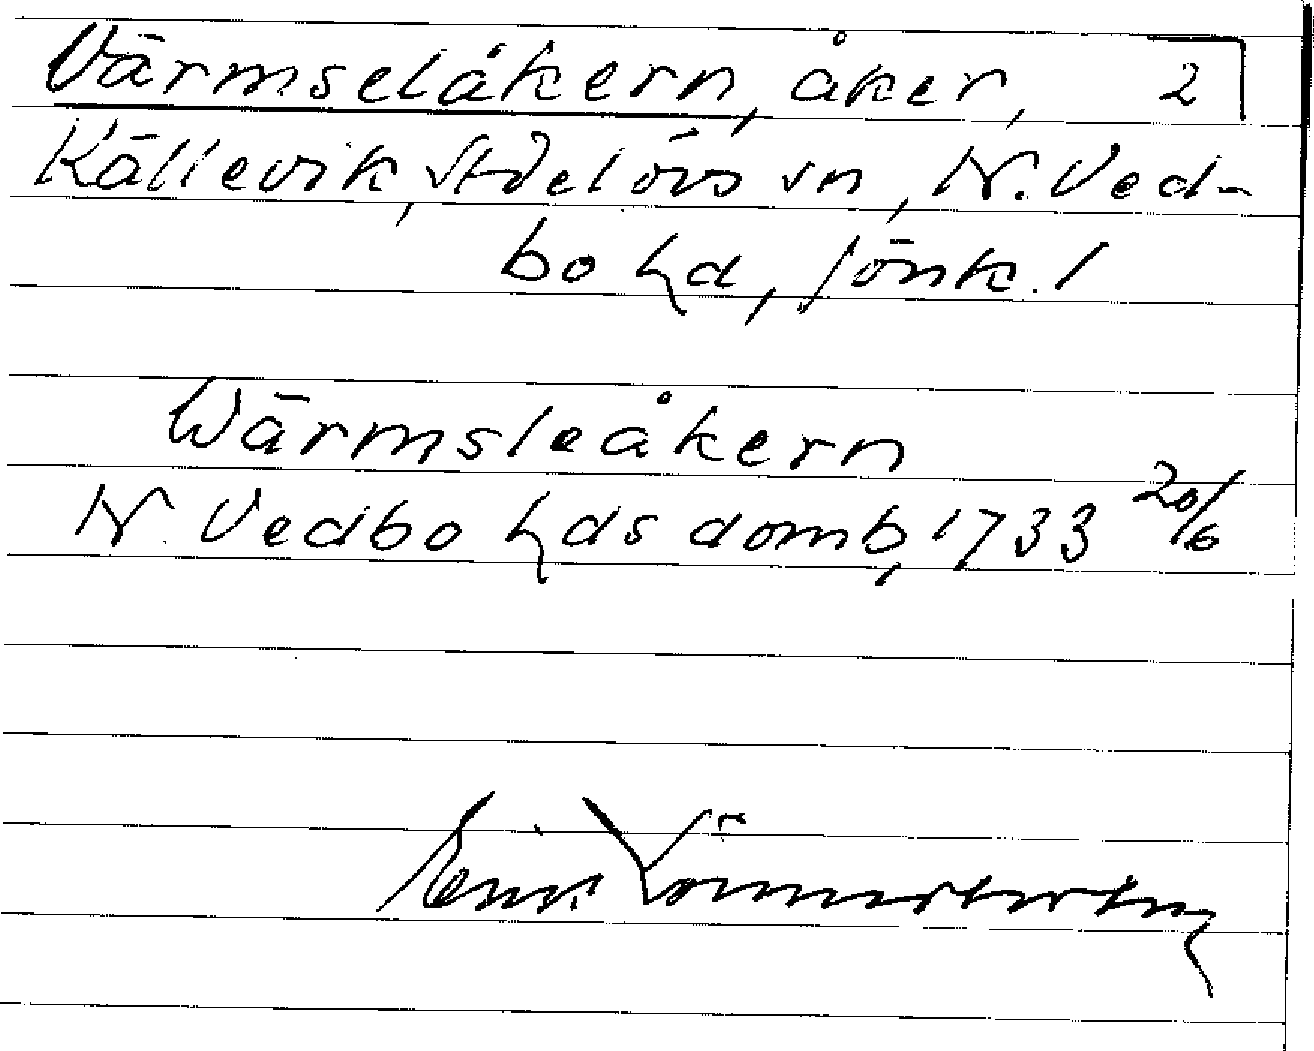 Värmselåkern, åker, 2
Källevik, Stdelövs sn, N. Ved-
bo hd, Jönk. l
Wärmsleåkern
N. Vedbo hds domb, 1733 20/6